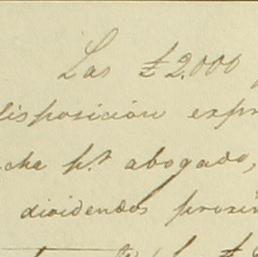 Las £2.000
disposición expr
cha p.r abogado,
dividendos proxi